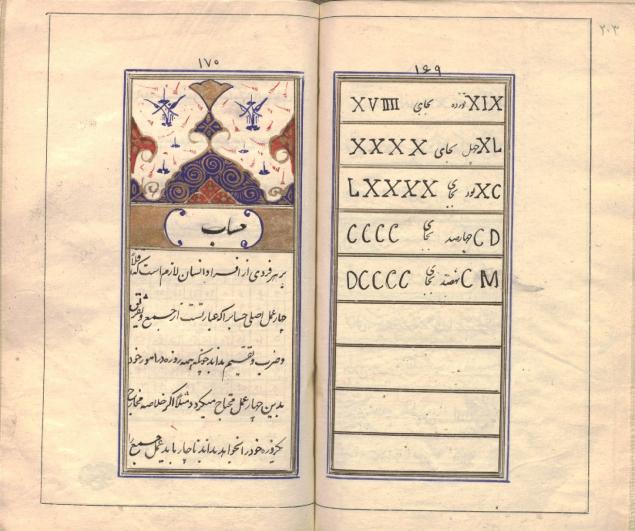 ۲۰۳
۱۶۹
XIX نوزده بجای XVIIII
XL چهل بجای XXXX
XC نود بجای LXXXX
CD چهارصد بجای CCCC
CM نهصد بجای DCCCC
۱۷۰
حساب
بر هر فردی از افراد انسان لازم است که اقلاً
چهار عمل اصلی حساب را که عبارتست از جمع و تفریق
و ضرب و تقسیم بداند چونکه همه روزه در امور خود
بدین چهار عمل محتاج میگردد مثلا اگر خلاصه مخارج
یکروزه خود را بخواهد بداند ناچار باید بعمل جمع